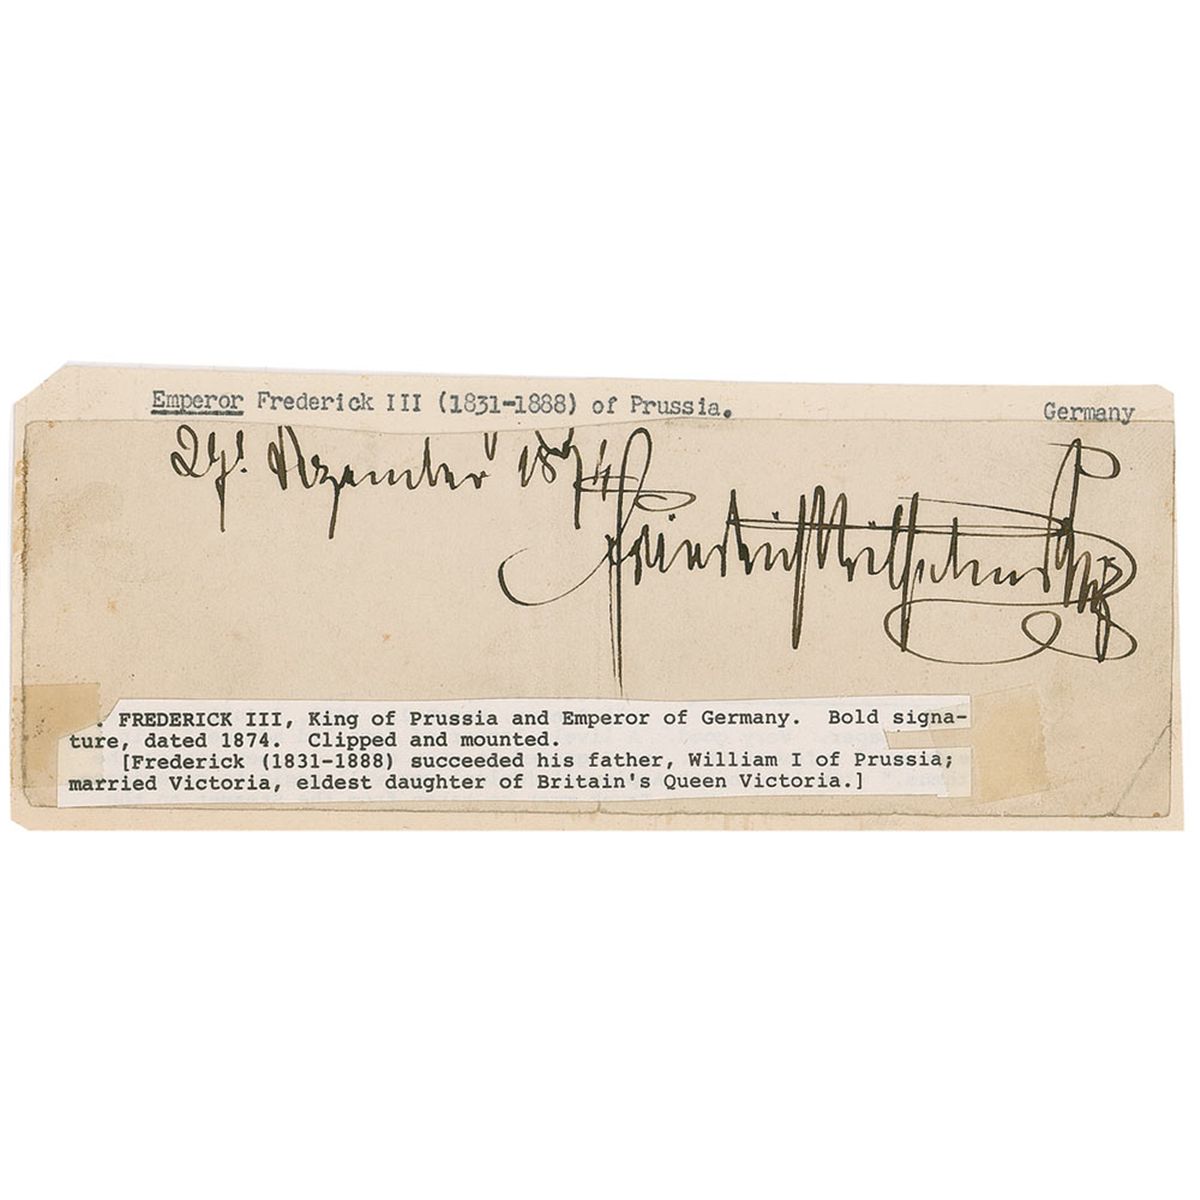 Emperor Frederick III (1831-1888) of Prussia.
Germany
27. Dezember 1874
Friedrich Wilhelm
. FREDERICK III, King of Prussia and Emperor of Germany. Bold signa-
ture, dated 1874. Clipped and mounted.
[Frederick (1831-1888) succeeded his father, William I of Prussia;
married Victoria, eldest daughter of Britain's Queen Victoria.]